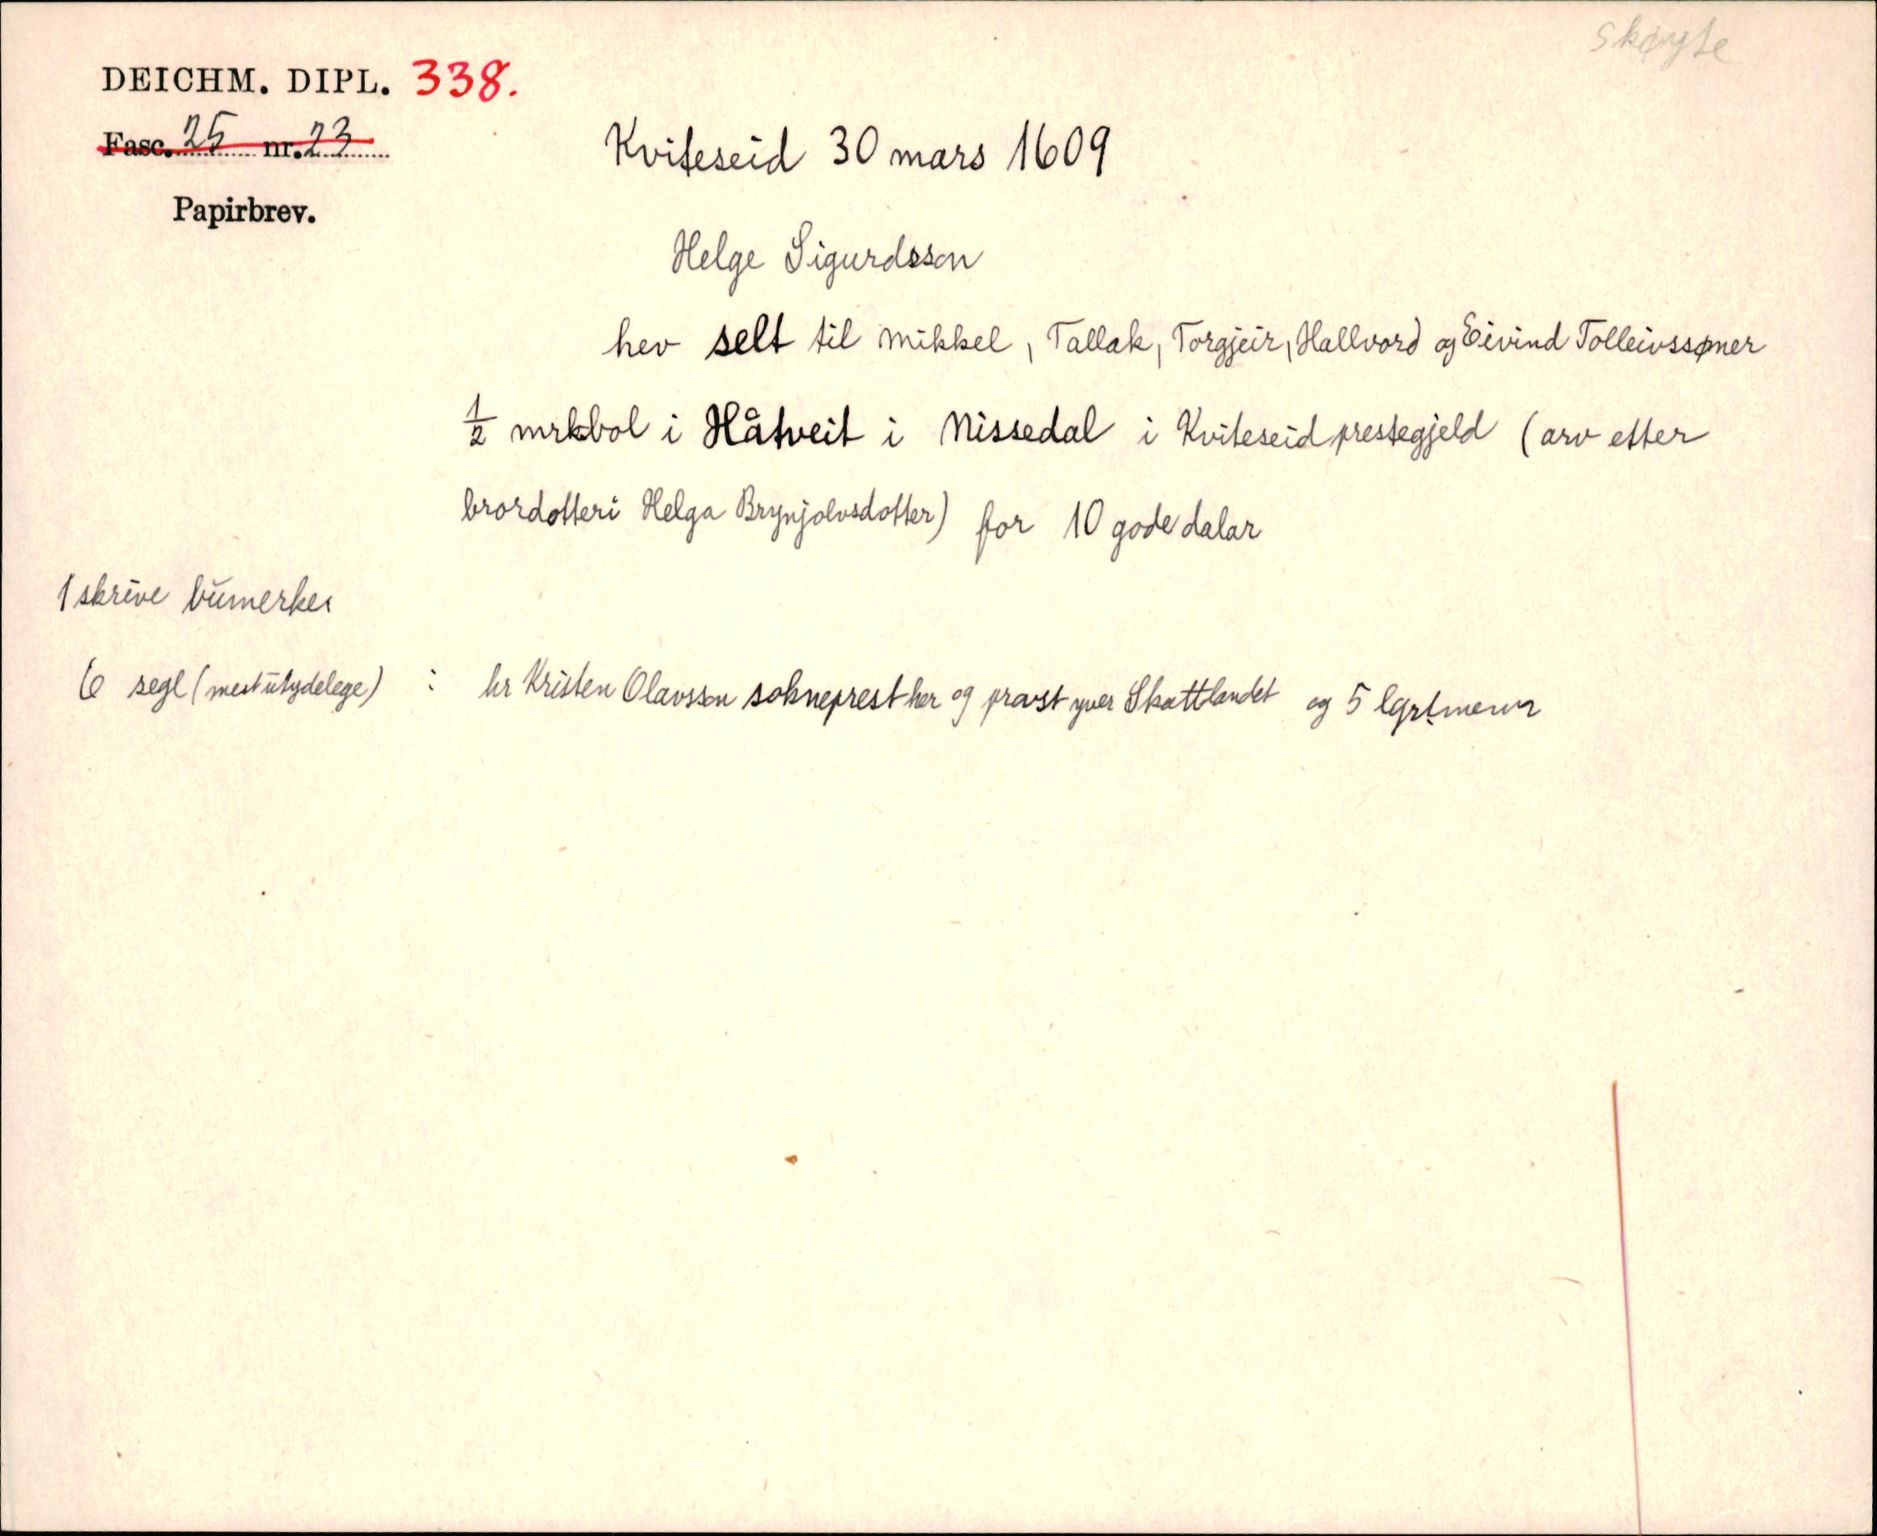 skøyte
DEICHM. DIPL. 338.
Fasc. 25 nr. 23
Kviteseid 30 mars 1609
Papirbrev.
Helge Sigurdsson
hev selt til Mikkel, Tallak, Torgjeir, Hallvord og Eivind Tolleivssøner
1/2 mrkbol i Håtveit i Nissedal i Kviteseid prestegjeld (arv etter
brordotteri Helga Brynjolvsdotter) for 10 gode dalar
1 skrive bumerke
6 segl (mest utydelege) : hr Kristen Olavsson sokneprest her og provst yver Skattlandet og 5 lgrtmenn